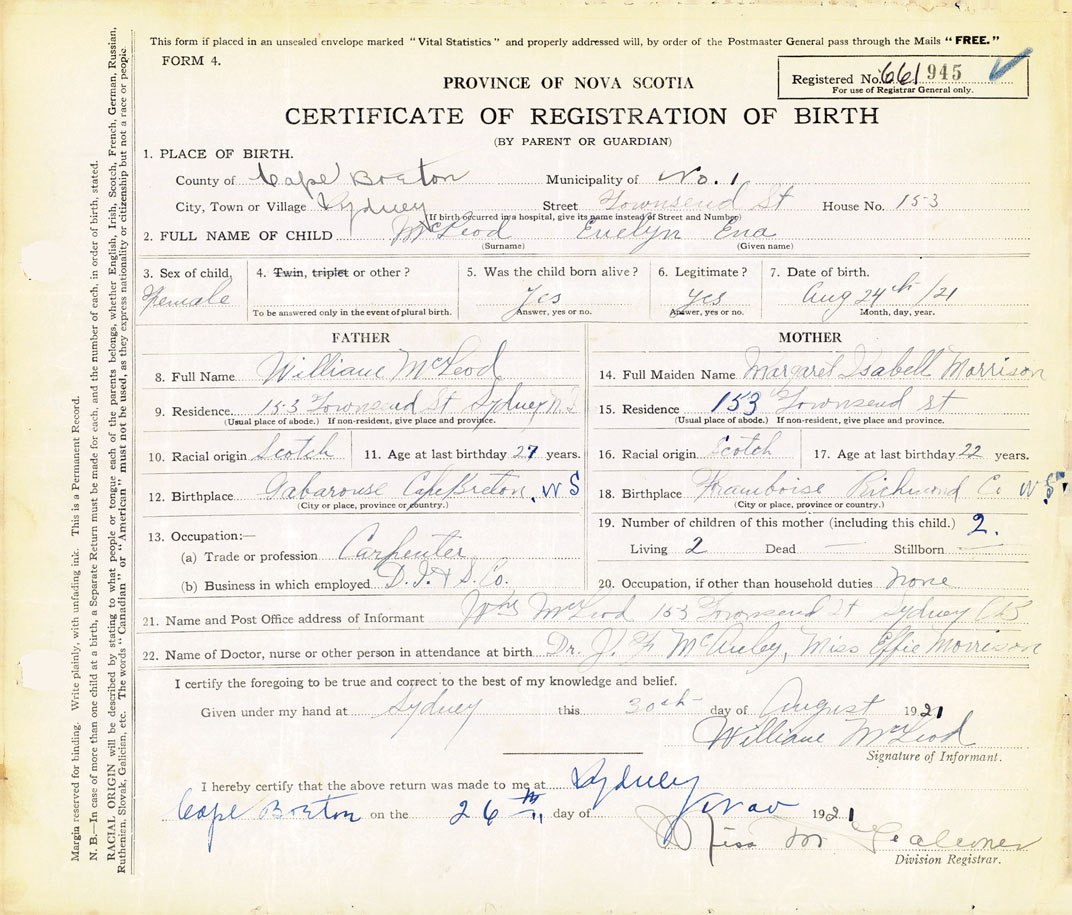 This form if placed in an unsealed envelope marked "Vital Statistics" and properly addressed will, by order of the Postmaster General pass through the Mails "FREE."
FORM 4.
Registered No. 661 945
For use of Registrar General only.
PROVINCE OF NOVA SCOTIA
CERTIFICATE OF REGISTRATION OF BIRTH
(BY PARENT OR GUARDIAN)
1. PLACE OF BIRTH.
County of Cape Breton Municipality of No. 1
City, Town or Village Sydney Street Townsend St House No. 153
(If birth occurred in a hospital, give its name instead of Street and Number)
2. FULL NAME OF CHILD McLeod Evelyn Ena
(Surname) (Given name)
3. Sex of child, 4. Twin, triplet or other? 5. Was the child born alive? 6. Legitimate? 7. Date of birth.
Female yes yes Aug 24th /21
To be answered only in the event of plural birth. Answer, yes or no. Answer, yes or no. Month, day, year.
FATHER
8. Full Name William McLeod
9. Residence 153 Townsend St Sydney N.S
(Usual place of abode.) If non-resident, give place and province.
10. Racial origin Scotch 11. Age at last birthday 27 years.
12. Birthplace Gabarouse Cape Breton, N S
(City or place, province or country.)
13. Occupation:—
(a) Trade or profession Carpenter
(b) Business in which employed D. I. & S. Co.
MOTHER
14. Full Maiden Name Margaret Isabell Morrison
15. Residence 153 Townsend St
(Usual place of abode.) If non-resident, give place and province.
16. Racial origin Scotch 17. Age at last birthday 22 years.
18. Birthplace Framboise Richmond Co N S
(City or place, province or country.)
19. Number of children of this mother (including this child.) 2.
Living 2 Dead — Stillborn —
20. Occupation, if other than household duties none
21. Name and Post Office address of Informant Wm McLeod 153 Townsend St Sydney CB
22. Name of Doctor, nurse or other person in attendance at birth Dr. J. Miss Effie Morrison
I certify the foregoing to be true and correct to the best of my knowledge and belief.
Given under my hand at Sydney this 30th day of August 1921
William McLeod
Signature of Informant.
I hereby certify that the above return was made to me at Sydney
Cape Breton on the 26th day of Nov 1921
Miss M Falconer
Division Registrar.
Margin reserved for binding. Write plainly, with unfading ink. This is a Permanent Record.
N. B.—In case of more than one child at a birth, a Separate Return must be made for each, and the number of each, in order of birth, stated.
RACIAL ORIGIN will be described by stating to what people or tongue each of the parents belongs, whether English, Irish, Scotch, French, German, Russian,
Ruthenien, Slovak, Galician, etc. The words "Canadian" or "American" must not be used, as they express nationality or citizenship but not a race or people.